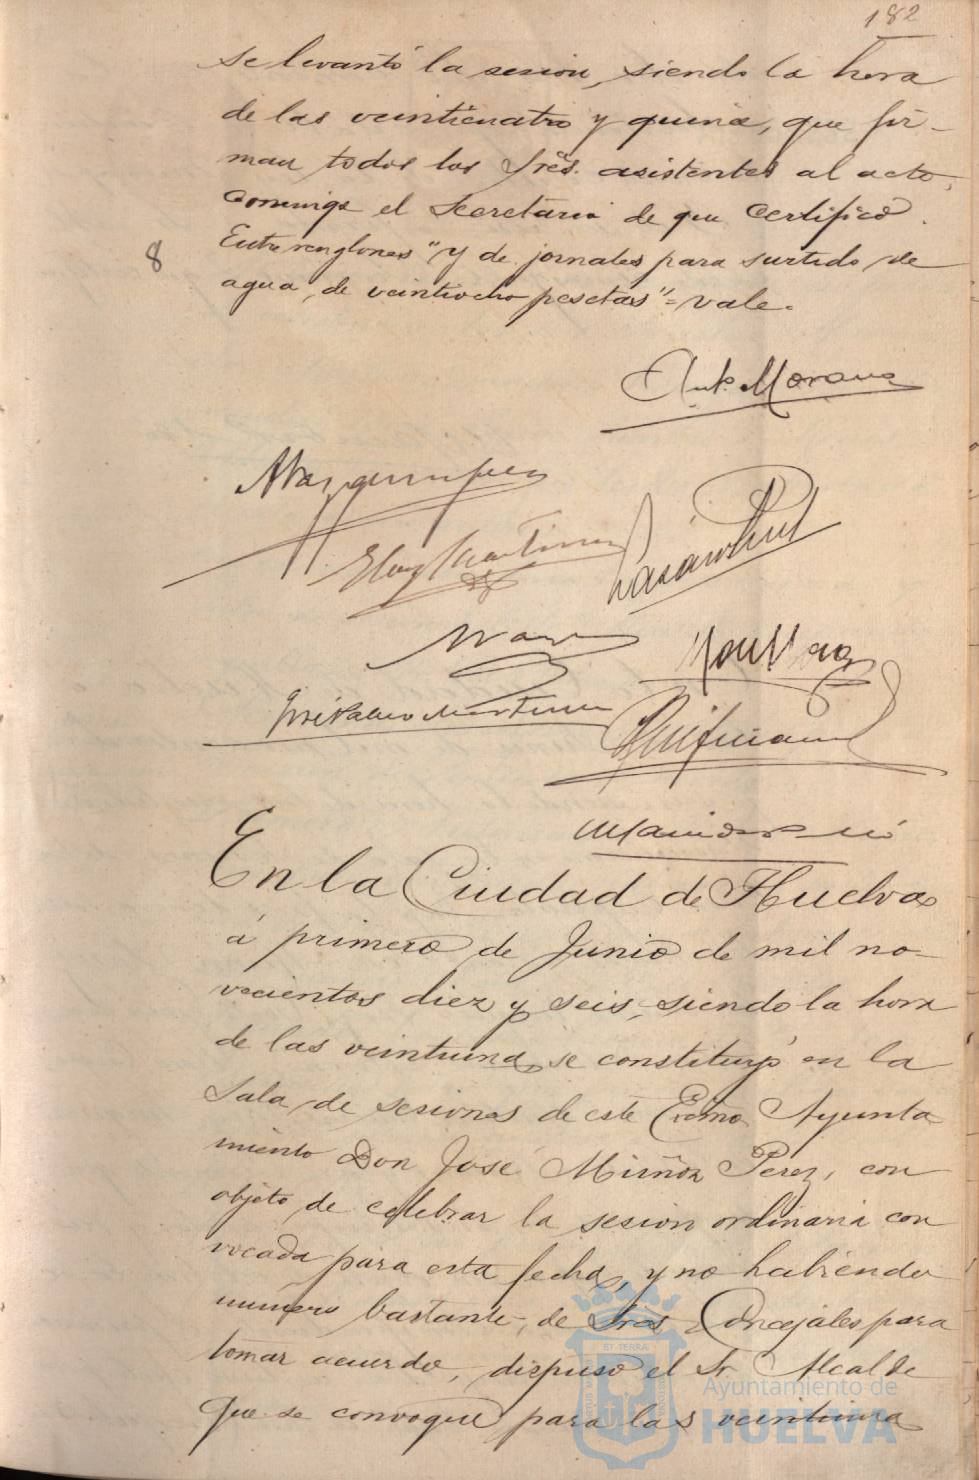 182
se levantó la sesion, siendo la hora
de las veinticuatro y quince, que fir-
man todos los Sres. asistentes al acto,
conmigo el Secretario de que certifico.
Entre renglones "y de jornales para surtido de
8
agua, de veintiocho pesetas" = vale.
Ant. Moreno
Eloy Martinez
José Pablo Martinez
En la Ciudad de Huelva
á primero de Junio de mil no-
vecientos diez y seis, siendo la hora
de las veintiuna, se constituyó en la
Sala de sesiones de este Excmo. Ayunta
miento Don José Muñoz Perez, con
objeto de celebrar la sesion ordinaria con
vocada para esta fecha, y no habiendo
numero bastante, de Sres. Concejales para
tomar acuerdo, dispuso el Sr. Alcalde
que se convoque para las veintiuna
Ayuntamiento de
HUELVA